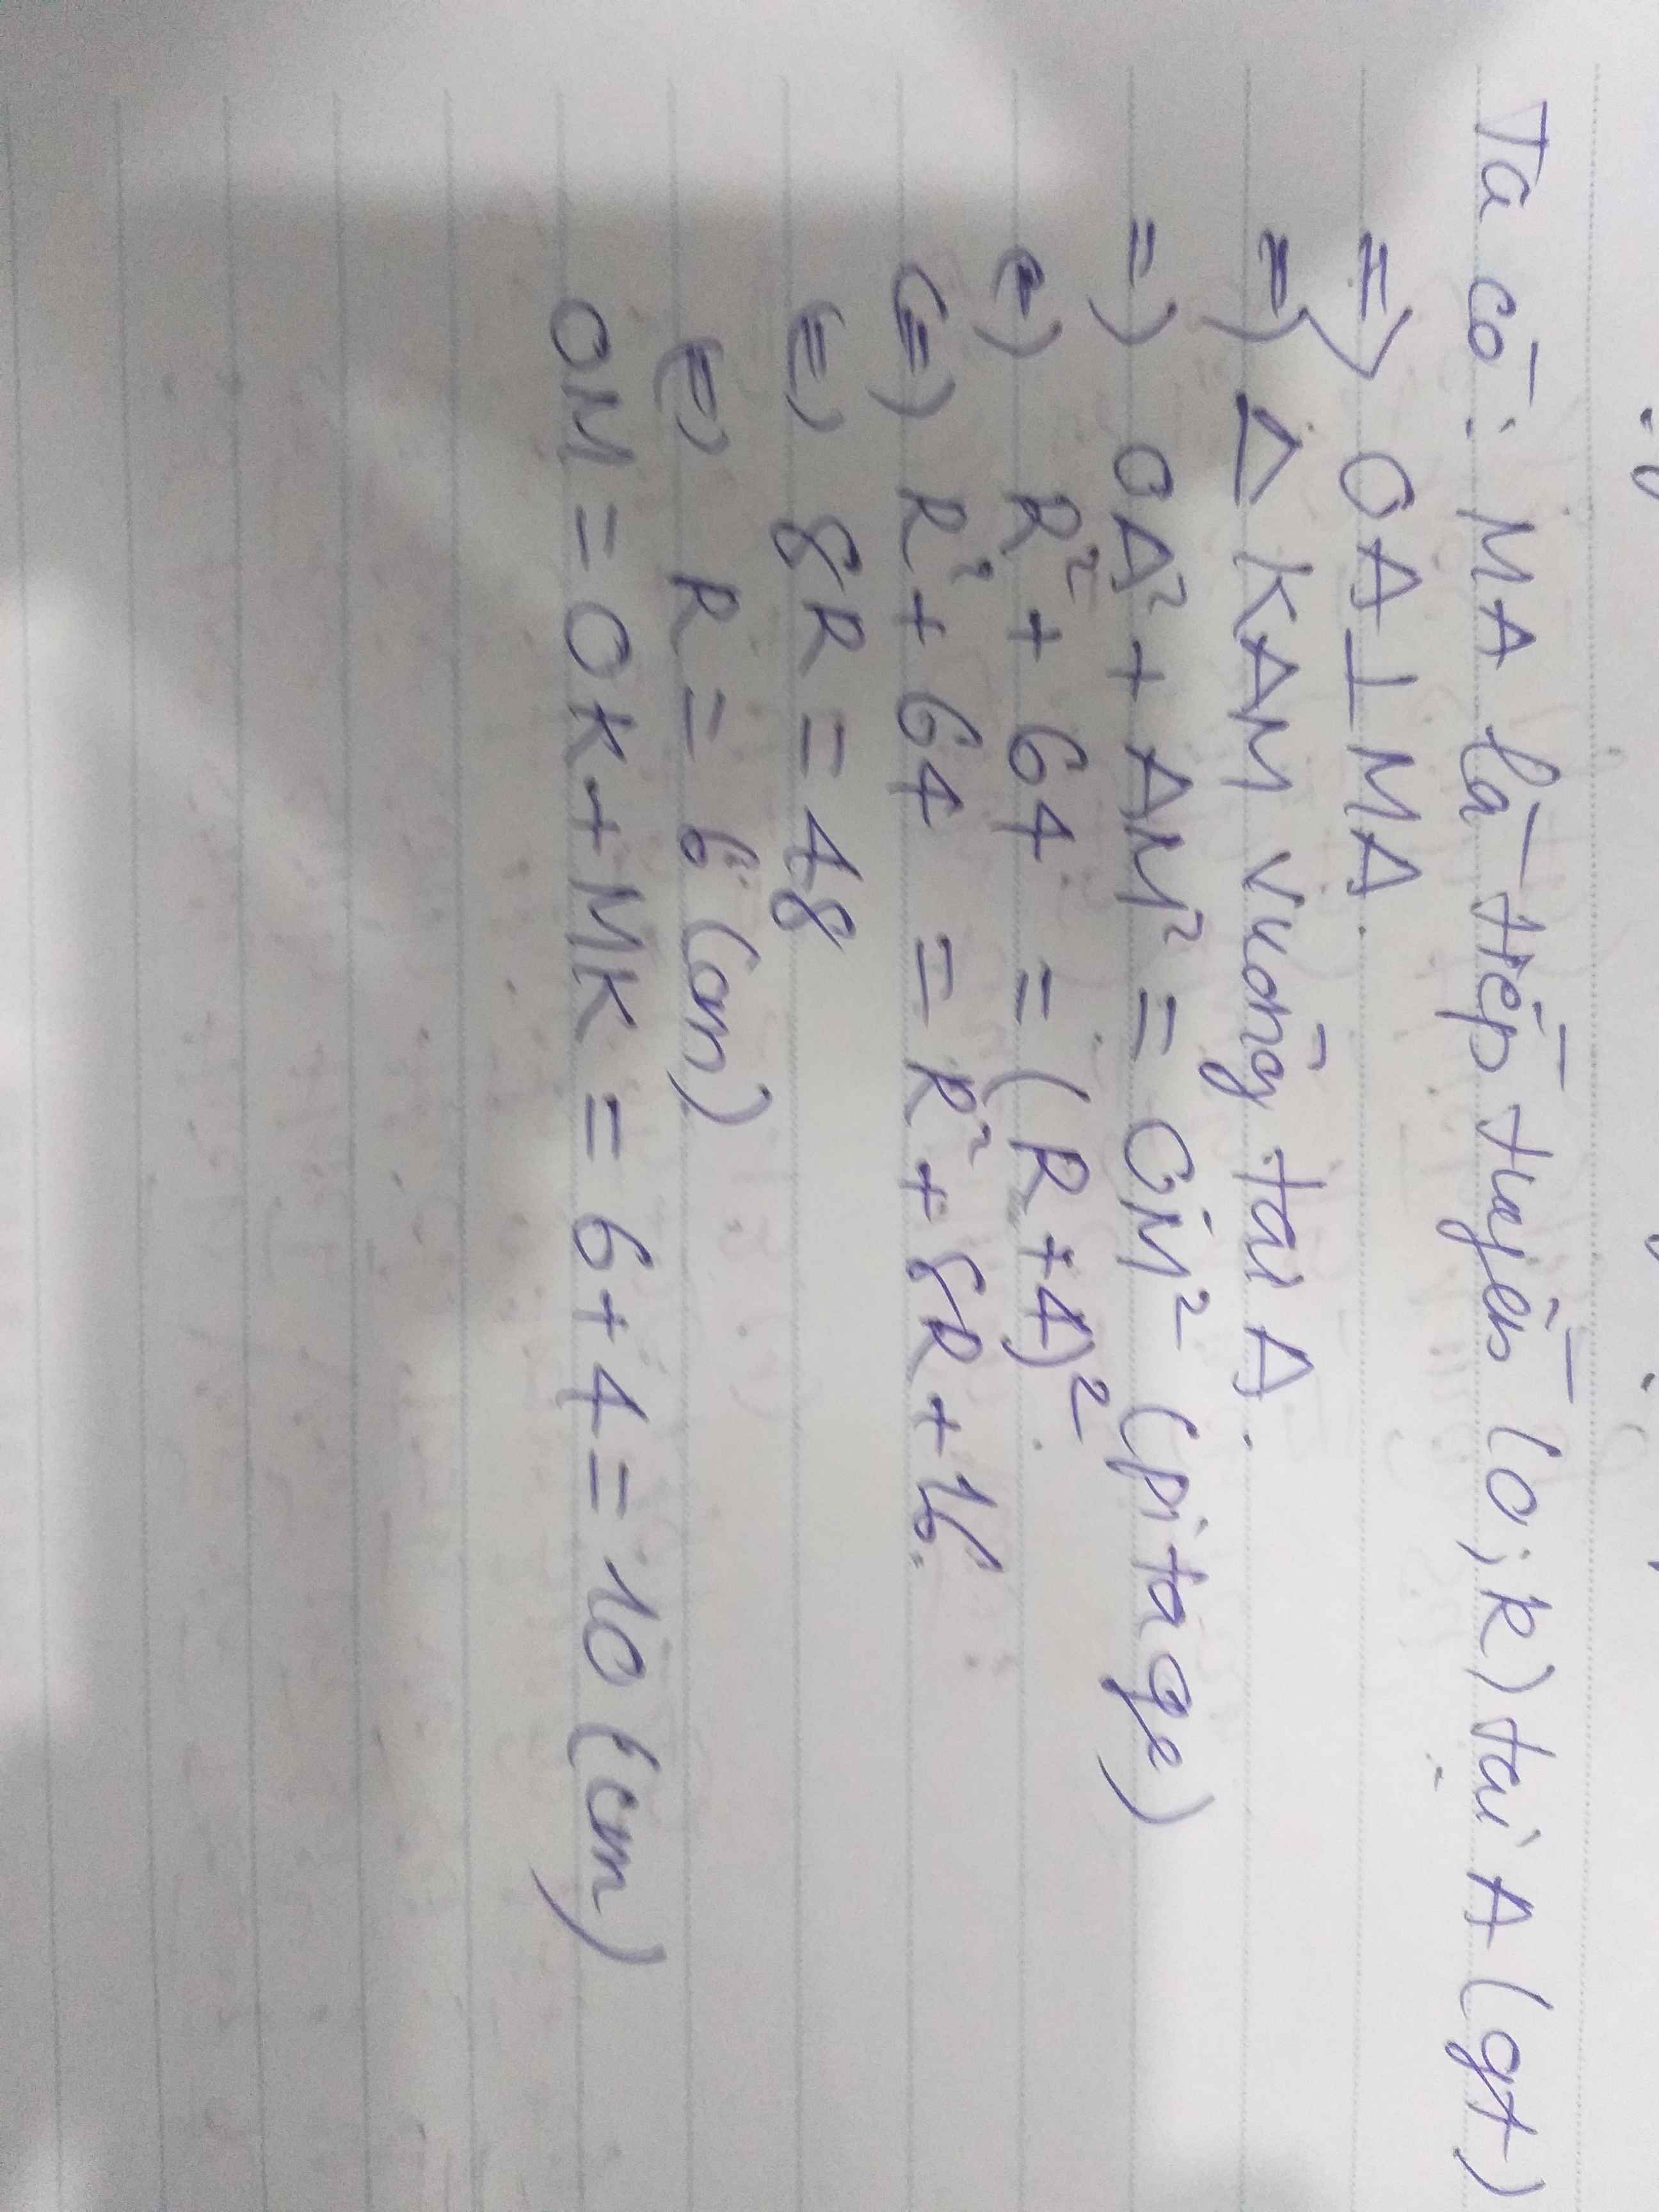 Ta có: MA là tiếp tuyến (O; R) tại A (gt)
=> OA ⊥ MA.
=> Δ KAM vuông tại A.
=> OA² + AM² = OM² (pitago)
<=> R² + 64 = (R + 4)²
<=> R² + 64 = R² + 8R + 16.
<=> 8R = 48
<=> R = 6 (cm)
OM = OK + MK = 6 + 4 = 10 (cm)